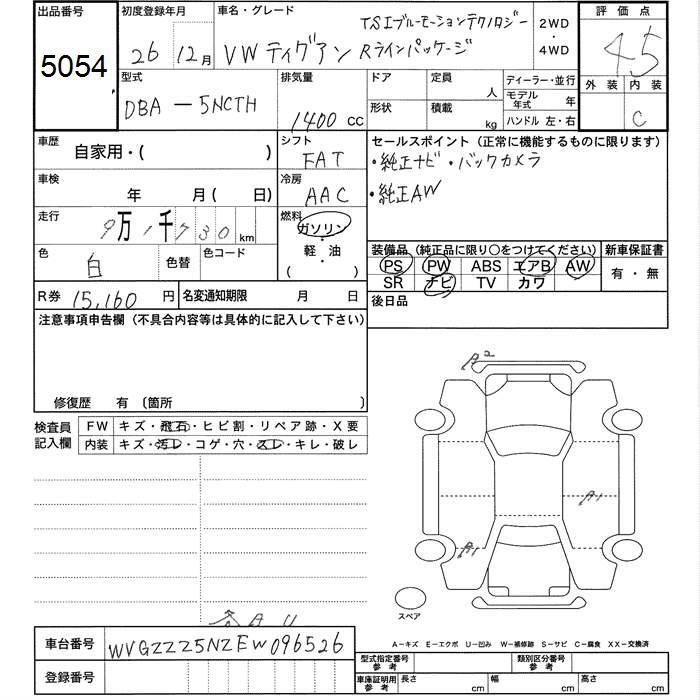 出品番号
5054
初度登録年月
26 年 12 月
車名・グレード
TSIブルーモーションテクノロジー
VW ティグアン Rラインパッケージ
2WD
・
4WD
評価点
4.5
外装 内装
C
型式
DBA-5NCTH
排気量
1400 cc
ドア
形状
定員 人
積載 kg
ディーラー・並行
モデル年式 年
ハンドル 左・右
車歴
自家用・( )
シフト
FAT
セールスポイント (正常に機能するものに限ります)
・純正ナビ・バックカメラ
・純正AW
車検
年 月 ( 日)
冷房
AAC
走行
9万1千730km
燃料
ガソリン
・
軽・油
・
( )
色
白
色替
色コード
装備品 (純正品に限り○をつけてください)
PS PW ABS エアB AW
SR ナビ TV カワ
新車保証書
有・無
R券 15,160 円
名変通知期限 月 日
後日品
注意事項申告欄 (不具合内容等は具体的に記入して下さい)
修復歴 有 〔箇所 〕
検査員記入欄
FW キズ・飛石・ヒビ割・リペア跡・X要
内装 キズ・汚レ・コゲ・穴・スレ・キレ・破レ
A2
A1
A1
スペア
A-キズ E-エクボ U-凹み W-補修跡 S-サビ C-腐食 XX-交換済
車台番号 WVGZZZ5NZEW096526
登録番号
型式指定番号 参考
類別区分番号 参考
車庫証明用 参考
長さ cm
幅 cm
高さ cm